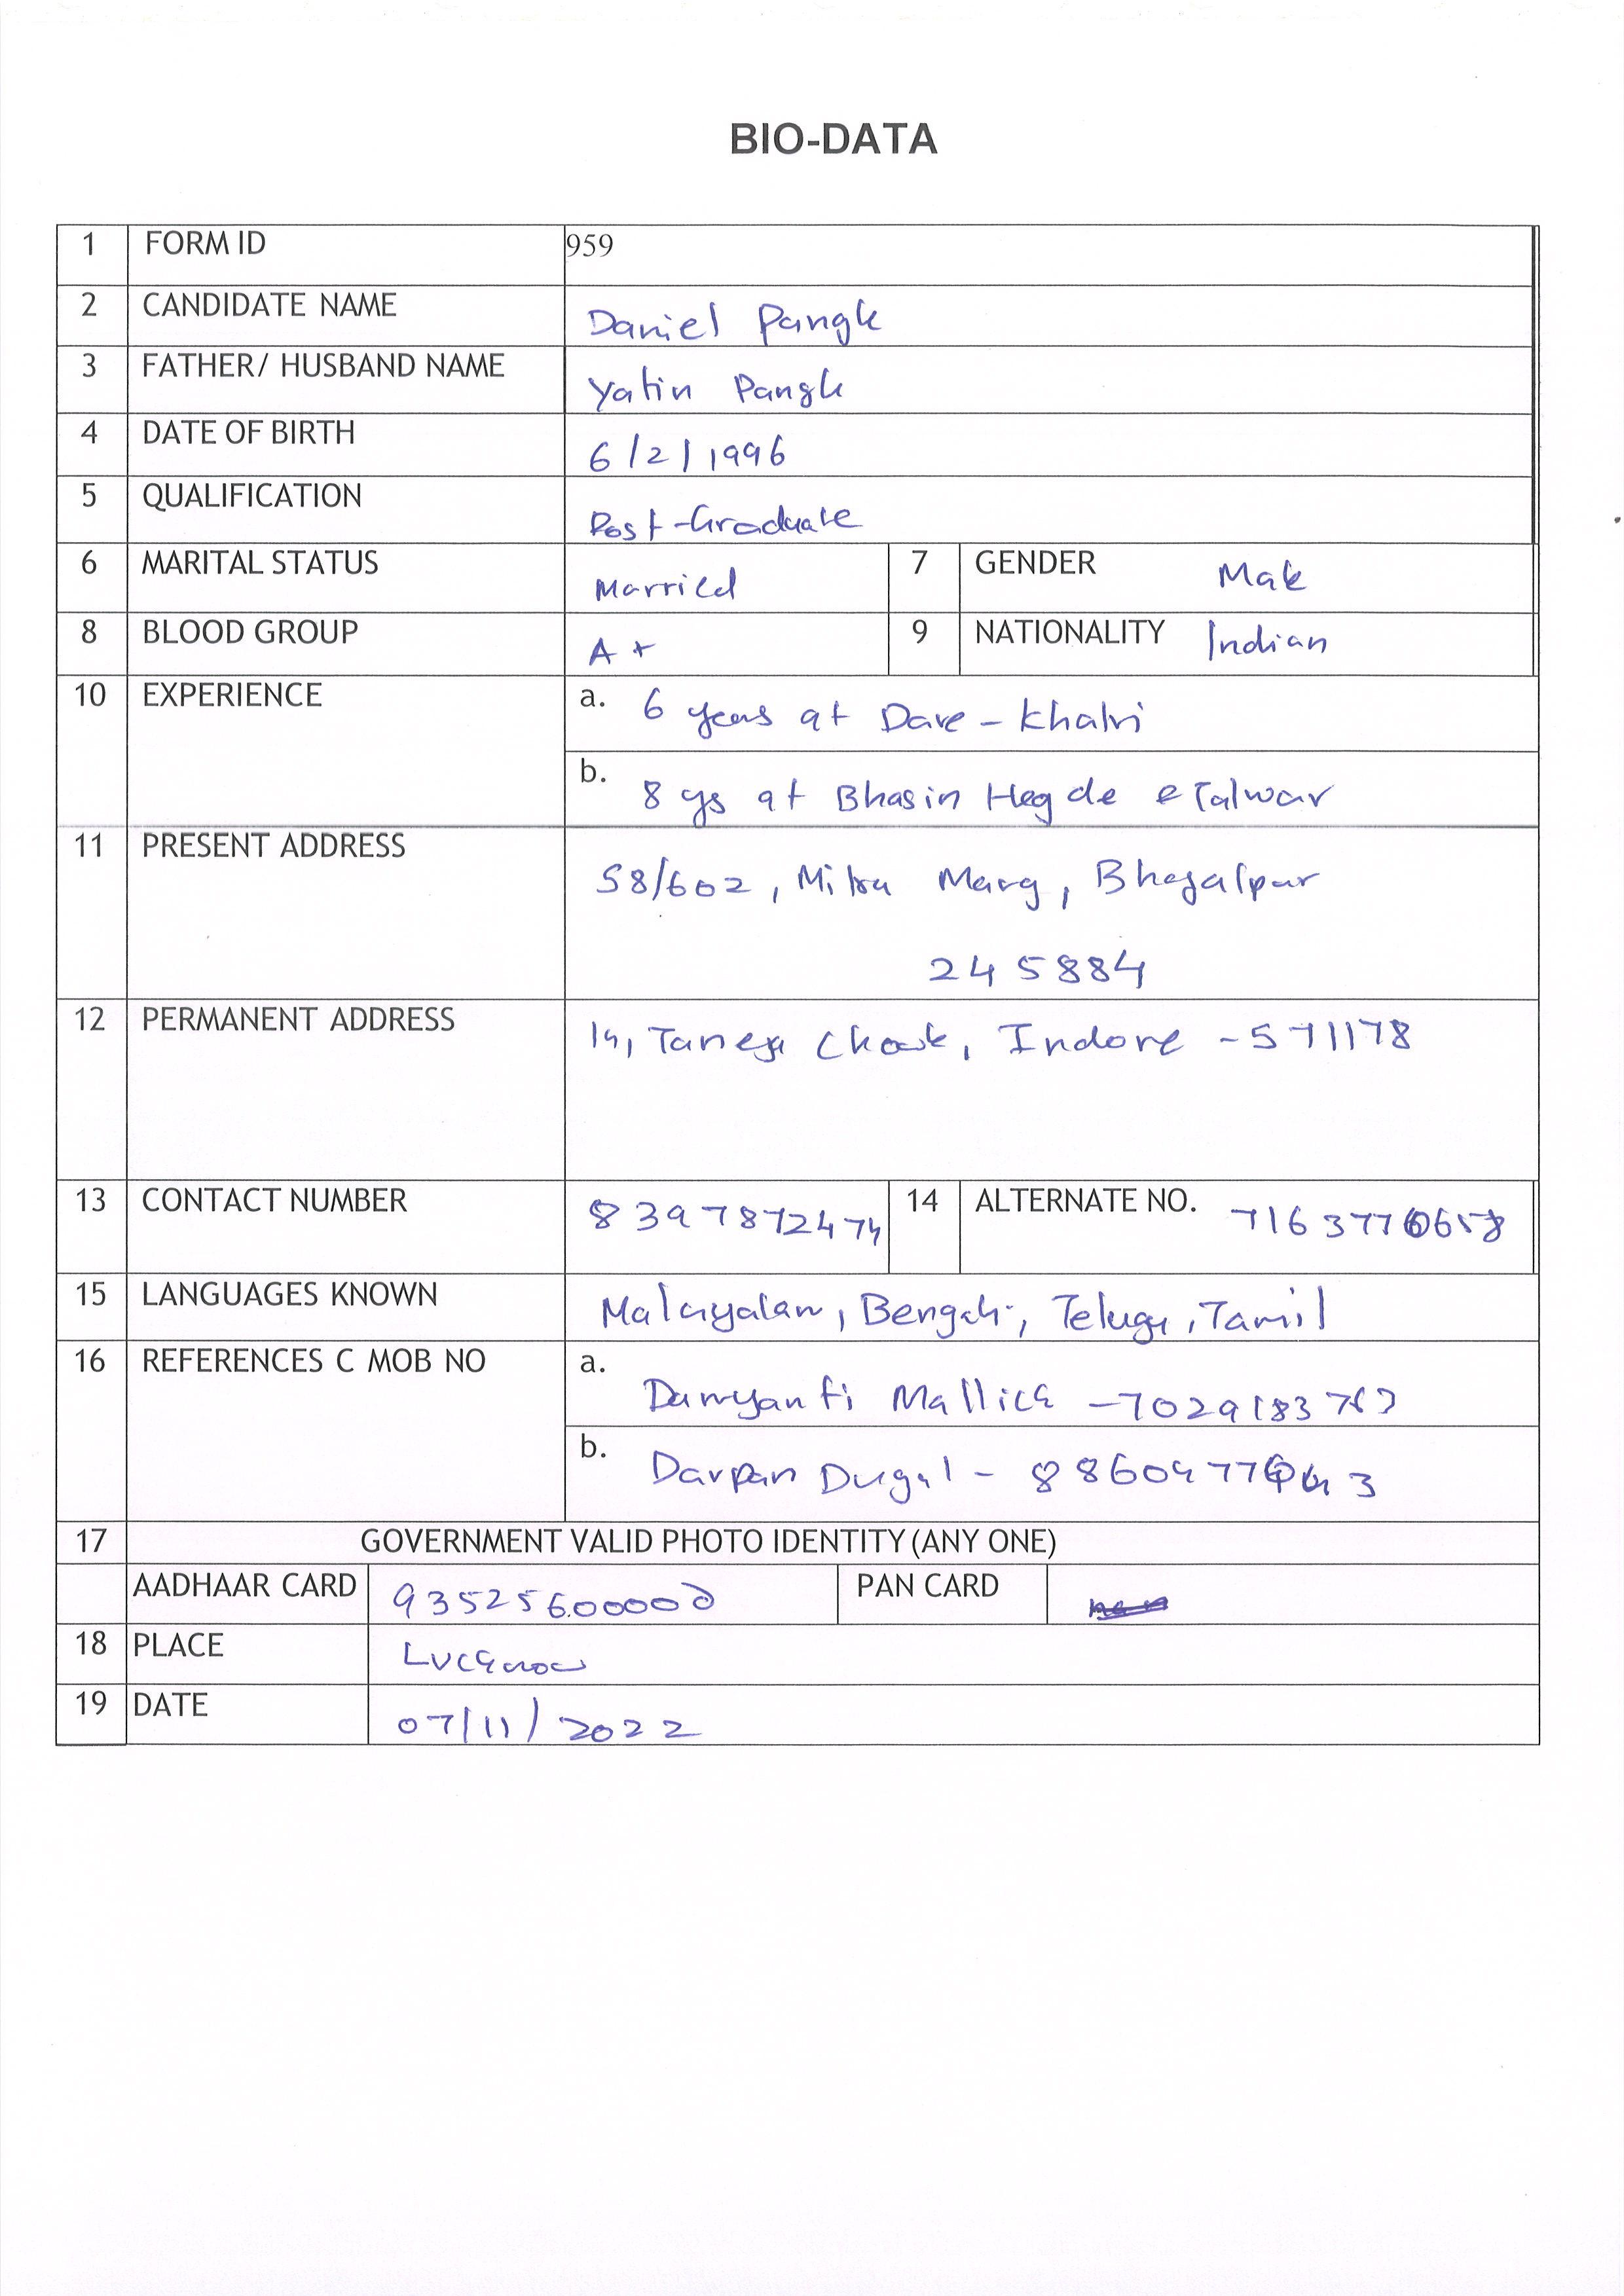 BIO-DATA
1 FORM ID 959
2 CANDIDATE NAME Daniel Pangle
3 FATHER/ HUSBAND NAME Yatin Pangle
4 DATE OF BIRTH 6/2/1996
5 QUALIFICATION Post-Graduate
6 MARITAL STATUS Married 7 GENDER Male
8 BLOOD GROUP A+ 9 NATIONALITY Indian
10 EXPERIENCE a. 6 years at Dave - Khatri
b. 8 ys at Bhasin Hegde Talwar
11 PRESENT ADDRESS 58/602, Mitra Marg, Bhagalpur
245884
12 PERMANENT ADDRESS 14, Taneja Chowk, Indore - 571178
13 CONTACT NUMBER 8397872474 14 ALTERNATE NO.
15 LANGUAGES KNOWN Malayalam, Bengali, Telugu, Tamil
16 REFERENCES C MOB NO a. Damyanti Mallick
b. Darpan Dugal -
17 GOVERNMENT VALID PHOTO IDENTITY (ANY ONE)
AADHAAR CARD 935256000000 PAN CARD
18 PLACE Lucknow
19 DATE 07/11/2022